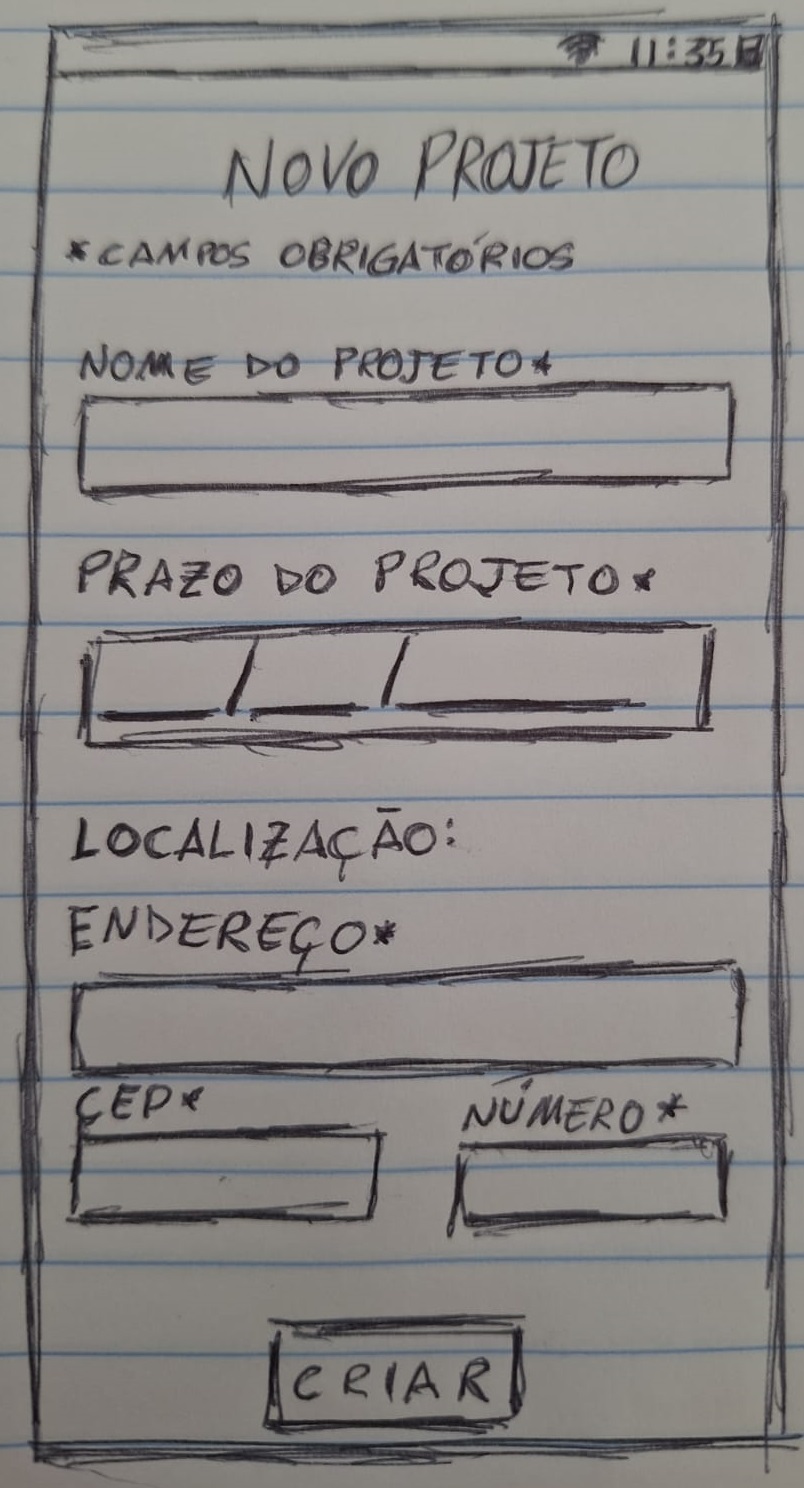 11:35
NOVO PROJETO
*CAMPOS OBRIGATÓRIOS
NOME DO PROJETO*
PRAZO DO PROJETO*
__/__/____
LOCALIZAÇÃO:
ENDEREÇO*
CEP* NÚMERO*
CRIAR